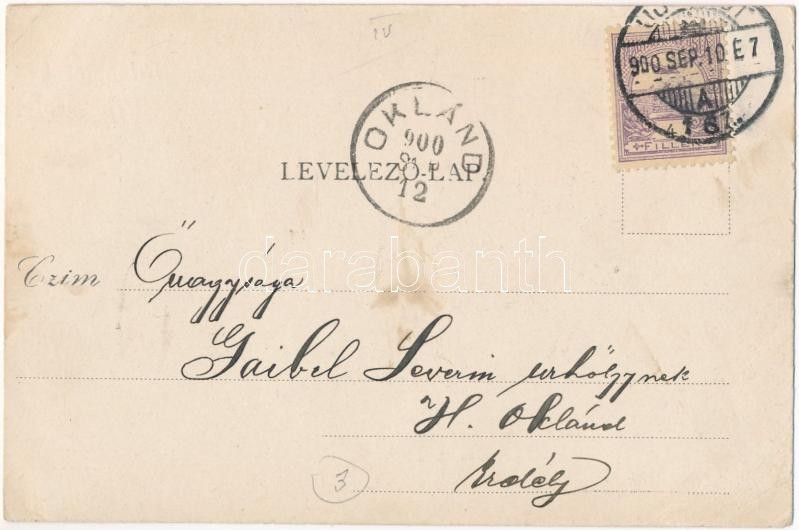 IV
900 SEP. 10. E 7
A
4 FILLÉR
OKLÁND
900
SEP
12
LEVELEZŐ-LAP.
darabanth
Czim Őnagysága
Gaibel Severin urhölgynek
H. Oklánd
Erdély
3